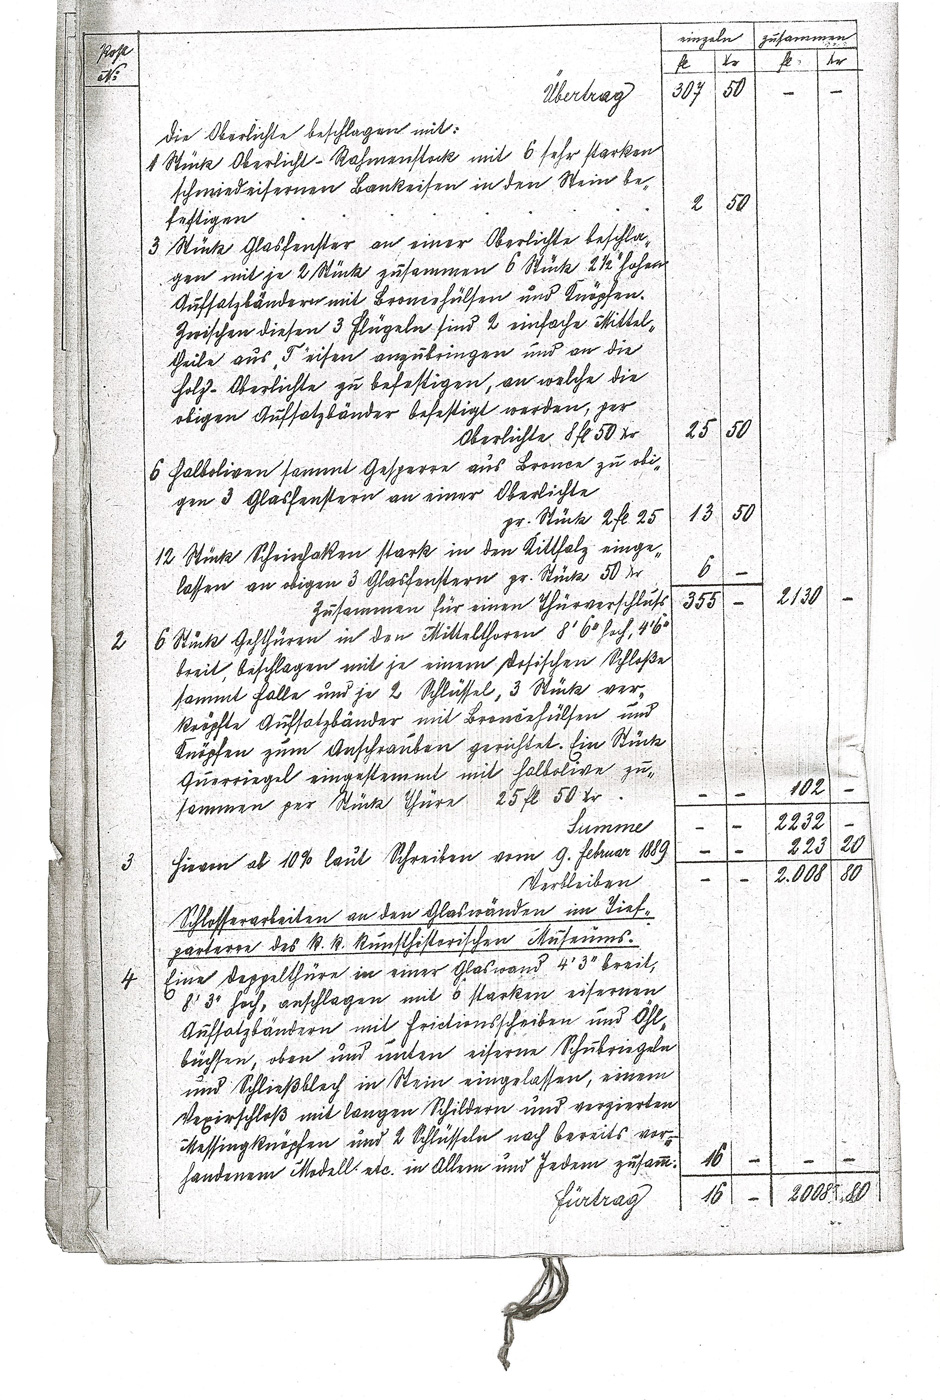 Post
No:
einzeln zusammen
fl kr fl. kr
Übertrag 307 50 – –
Die Oberlichte beschlagen mit:
1 Stück Oberlicht-Rahmenstock mit 6 sehr starken
schmiedeisernen Bankeisen in den Stein be„
festigen . . . . . . 2 50
3 Stück Glasfenster an einer Oberlichte beschla„
gen mit je 2 Stück zusammen 6 Stück 2½" hohen
Aufsatzbändern mit Broncehülsen und Knöpfen.
Zwischen diesen 3 Flügeln sind 2 einfache Mittel„
theile aus „T" eisen anzubringen und an die
Holz-Oberlichte zu befestigen, an welche die
obigen Aufsatzbänder befestigt werden, per
Oberlichte 8 fl 50 kr 25 50
6 Halboliven sammt Gesperre aus Bronce zu obi„
gen 3 Glasfenstern an einer Oberlichte
pr. Stück 2 fl. 25 13 50
12 Stück Scheinhaken stark in den Kittfalz einge„
lassen an obigen 3 Glasfenstern pr. Stück 50 kr 6 –
Zusammen für einen Thürverschluß 355 – 2130 –
2 6 Stück Gehthüren in den Mittelthoren 8' 6" hoch, 4' 6"
breit, beschlagen mit je einem Dosischen Schloße
sammt Falle und je 2 Schlüssel, 3 Stück ver„
kröpfte Aufsatzbänder mit Broncehülsen und
Knöpfen zum Anschrauben gerichtet. Ein Stück
Querriegel eingestemmt mit Halbolive zu„
sammen per Stück Thüre 25 fl 50 kr . – – 102 –
Summe – – 2232 –
3 Hievon ab 10% laut Schreiben vom 9. Februar 1889 – – 223 20
Verbleiben – – 2.008 80
Schlosserarbeiten an den Glaswänden im Tief„
parterre des k. k. kunsthistorischen Museums.
4 Eine Doppelthüre in einer Glaswand 4' 3" breit,
8' 3" hoch, anschlagen mit 6 starken eisernen
Aufsatzbändern mit Frictionsscheiben und Öhl„
büchsen, oben und unten eiserne Schubriegeln
und Schließblech in Stein eingelassen, einem
Vexirschloß mit langen Schildern und verzierten
Messingknöpfen und 2 Schlüsseln nach bereits vor„
handenem Modell etc. in Allem und Jedem zusam̄: 16 – – –
Fürtrag 16 – 2008 80